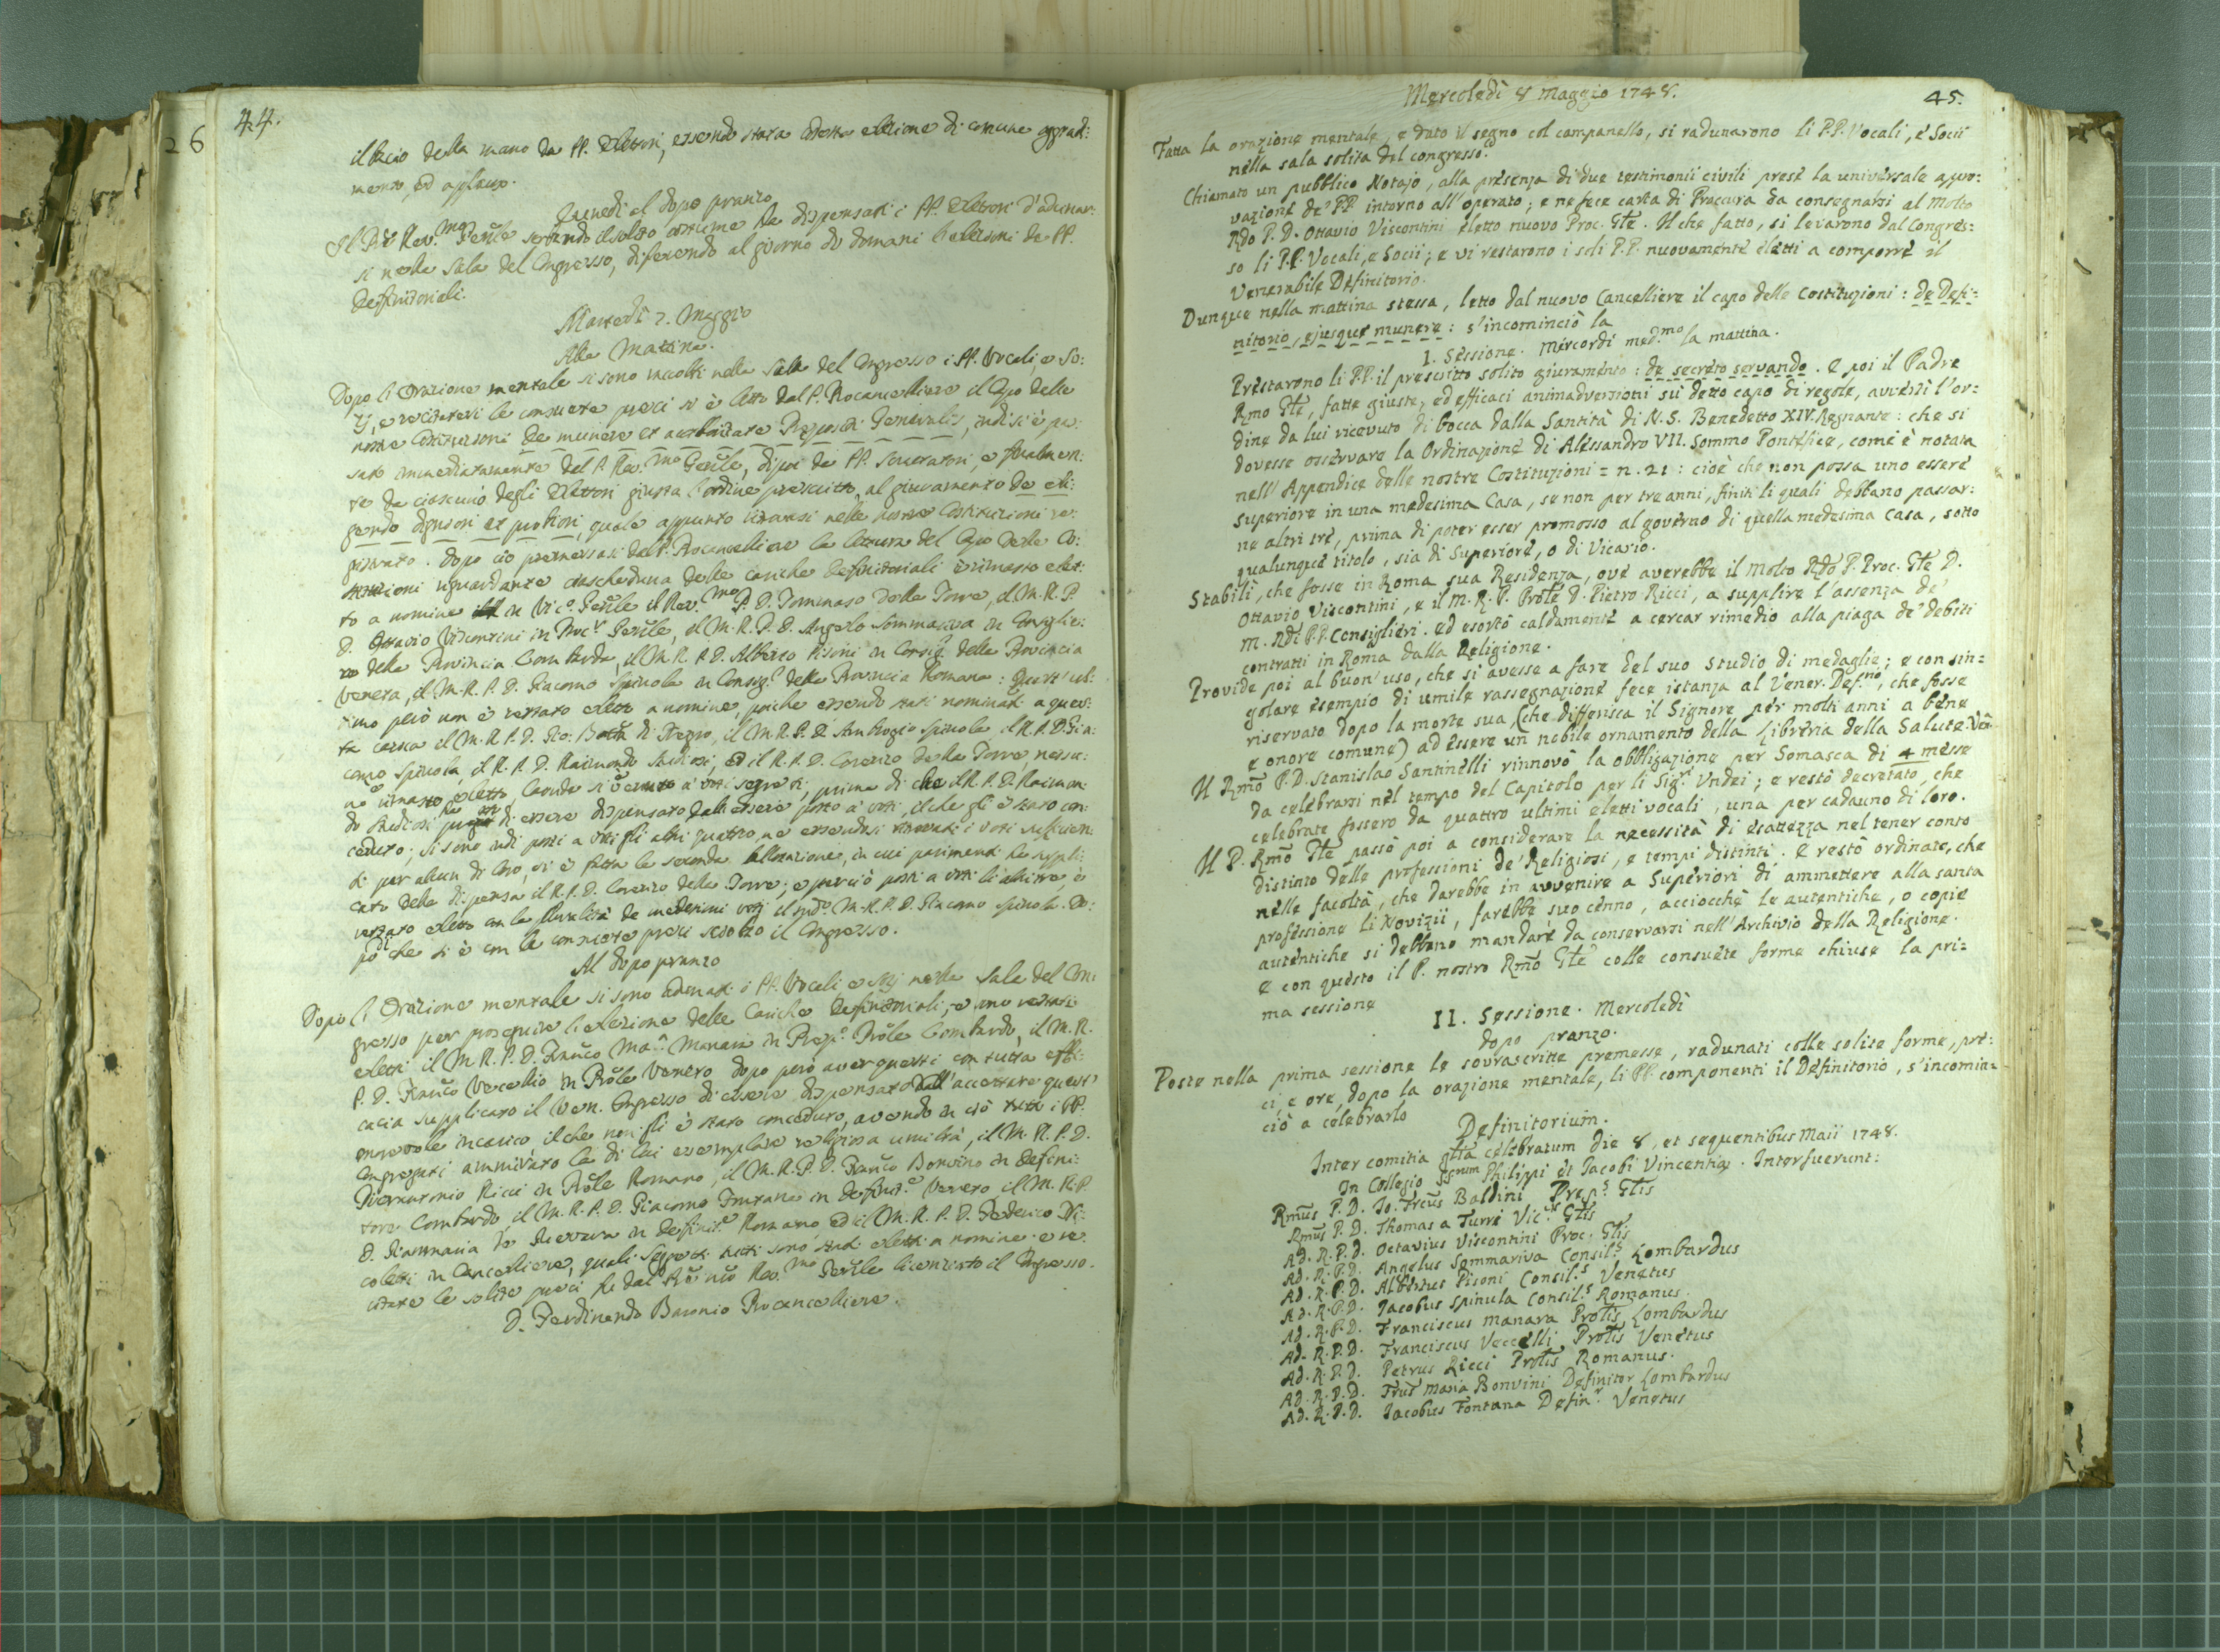 44.
26
il bacio della mano da PP. Elettori, essendo stata cotesta elezione di comune aggradi:
mento, ed applauso.
Lunedì al dopo pranzo
Il P. Rev.mo Gen'le servendo il solito costume ha dispensati i PP. Elettori d'adunar:
si nella Sala del Congresso, diferendo al giorno di domani l'elezioni de PP.
Definitoriali.
Martedì 7. Maggio
Alla Mattina.
Dopo l'Orazione mentale si sono raccolti nella Sala del Congresso i PP. Vocali, e So:
zj, e recitatevi le consuete preci si è letto dal P. Procancelliere il Capo delle
nostre Costituzioni De munere et auctoritate Præpositi Generalis, indi si è pas:
sato immediatamente dal P. Rev.mo Gen'le, dipoi da PP. Scrutatori, e finalmen:
te da ciascuno degli Elettori giusta l'ordine prescritto al giuramento de eli:
gendo digniori et probiori, quale appunto ritrovasi nelle nostre Costituzioni re:
gistrato. Dopo ciò premessasi dal P. Procancelliere la lettura del Capo delle Co:
stituzioni riguardante ciascheduna delle cariche Definitoriali è rimasto elet:
to a nomine in Vic.o Gen'le il Rev.mo P. D. Tommaso della Torre, il M. R. P.
D. Ottavio Visconti in Proc.r Gen'le, il M. R. P. D. Angelo Sommariva in Consiglie:
ro della Provincia Lombarda, il M. R. P. D. Alberto Pisoni in Consig.r della Provincia
Veneta, il M. R. P. D. Giacomo Spinola in Consig.r della Provincia Romana: Quest'ul:
timo però non è restato eletto a nomine, poiche essendo stati nominati a ques:
ta carica il M. R. P. D. Gio: Batta di Negro, il M. R. P. D. Ambrogio Spinola, il R. P. D. Gia:
como Spinola, il R. P. D. Raimondo Studiosi, ed il R. P. D. Lorenzo della Torre, nessu:
no è rimasto eletto, laonde si è venuto a' voti segreti, prima di che il R. P. D. Raimon:
do Studiosi di essere dispensato dall'essere posto a' voti, il che gli è stato con:
ceduto; si sono indi posti a voti gli altri quattro, ne essendosi ritrovati i voti sufficien:
ti per alcun di loro, si è fatta la seconda ballottazione, in cui parimenti ha suppli:
cato della dispensa il R. P. D. Lorenzo della Torre; e perciò posti a voti li altri tre, è
restato eletto con la pluralità de medesimi voti il sud.o M. R. P. D. Giacomo Spinola. Do:
po di che si è con le consuete preci sciolto il Congresso.
Al dopo pranzo
Dopo l'Orazione mentale si sono adunati i PP. Vocali e Szj nella Sala del Con:
gresso per proseguire l'elezione delle Cariche Definitoriali; e sono restati
eletti il M. R. P. D. Fran'co Ma.a Manara in Prep.o Pro'le Lombardo, il M. R.
P. D. Fran'co Vecellio in Pro'le Veneto dopo però aver questi con tutta effi:
cacia supplicato il Ven. Congresso di essere dispensato dall'accettare quest'
onorevole incarico il che non gli è stato conceduto, avendo in ciò tutti i PP.
Congregati ammirato la di lui esemplare religiosa umiltà, il M. R. P. D.
Pierantonio Ricci in Pro'le Romano, il M. R. P. D. Fran'co Bonvino in Defini:
tore Lombardo, il M. R. P. D. Giacomo Fontana in Definit.e Veneto, il M. R. P.
D. Giammaria in Definit.e Romano, ed il M. R. P. D. Federico Ni:
coletti in Cancelliere, quali Soggetti tutti sono stati eletti a nomine: e re:
citate le solite preci fu dal Rev.mo Gen'le licenziato il Congresso.
D. Ferdinando Baronio Procancelliere.
Mercoledì 8 Maggio 1748.
45.
Fatta la orazione mentale, e dato il segno col campanello, si radunarono li P.P. Vocali, e Socii
nella sala solita del congresso.
Chiamato un pubblico Notajo, alla presenza di due testimonii civili prese la universale appro:
vazione de' PP. intorno all'operato; e ne fece carta di Procura da consegnarsi al Molto
Rdo P. D. Ottavio Viscontini eletto nuovo Proc. Gle. Il che fatto, si levarono dal Congres:
so li P.P. Vocali, e Socii; e vi restarono i soli P.P. nuovamente eletti a comporre il
Venerabile Definitorio.
Dunque nella mattina stessa, letto dal nuovo Cancelliere il capo delle Costituzioni: de Defi:
nitorio, ejusque munere: s'incominciò la
I. Sessione. Mercordì med.mo la mattina.
Prestarono li P.P. il prescritto solito giuramento: de secreto servando. E poi il Padre
Rmo Gle, fatte giuste, ed efficaci animadversioni su detto capo di regole, avvertì l'or:
dine da lui ricevuto di bocca dalla Santità di N. S. Benedetto XIV. Regnante: che si
dovesse osservare la Ordinazione di Alessandro VII. Sommo Pontefice, come è notata
nell'Appendice delle nostre Costituzioni = n. 21: cioè che non possa uno essere
superiore in una medesima Casa, se non per tre anni, finiti li quali debbano passar:
ne altri tre, prima di poter esser promosso al governo di quella medesima Casa, sotto
qualunque titolo, sia di Superiore, o di Vicario.
Stabilì, che fosse in Roma sua Residenza, ove averebbe il Molto Rdo P. Proc. Gle D.
Ottavio Viscontini, e il M. R. P. Prole D. Pietro Ricci, a supplire l'assenza de'
M. Rdi P.P. Consiglieri. ed esortò caldamente a cercar rimedio alla piaga de' debiti
contratti in Roma dalla Religione.
Provide poi al buon'uso, che si avesse a fare del suo studio di medaglie; e con sin=
golare esempio di umile rassegnazione fece istanza al Vener. Def.no, che fosse
riservato dopo la morte sua (che differisca il Signore per molti anni a bene
e onore comune) ad essere un nobile ornamento della Libreria della Salute. Ven.
Il Rmo P. D. Stanislao Santinelli rinnovò la obbligazione per Somasca di 4 messe
da celebrarsi nel tempo del Capitolo per li Sig.ri Undei; e restò decretato, che
celebrate fossero da quattro ultimi eletti vocali, una per cadauno di loro.
Il P. Rmo Gle passò poi a considerare la necessità di esattezza nel tener conto
distinto delle professioni de' Religiosi, e tempi distinti. E restò ordinato, che
nelle facoltà, che darebbe in avvenire a Superiori di ammettere alla santa
professione li Novizii, farebbe suo cenno, acciocchè le autentiche, o copie
autentiche si debbano mandare da conservarsi nell'Archivio della Religione.
E con questo il P. nostro Rmo Gle colle consuete forme chiuse la pri=
ma sessione
II. Sessione. Mercoledì
dopo pranzo.
Poste nella prima sessione le sovrascritte premesse, radunati colle solite forme, pre:
ci, e ore, dopo la orazione mentale, li PP. componenti il Definitorio, s'incomin=
ciò a celebrarlo
Definitorium.
Inter comitia glia celebratum die 8, et sequentibus Maii 1748.
In Collegio SSrum Philippi et Jacobi Vincentiæ. Interfuerunt:
Rmus P. D. Jo: Frcus Baldini Prep.s Glis
Rmus P. D. Thomas a Turri Vic.s Glis
Ad. R. P. D. Octavius Viscontini Proc. Glis
Ad. R. P. D. Angelus Sommariva Consil.s Lombardus
Ad. R. P. D. Albertus Pisoni Consil.s Venetus
Ad. R. P. D. Jacobus Spinula Consil.s Romanus.
Ad. R. P. D. Franciscus Manara Prolis Lombardus
Ad. R. P. D. Franciscus Veccelli Prolis Venetus
Ad. R. P. D. Petrus Ricci Prolis Romanus.
Ad. R. P. D. Frus Maria Bonvini Definitor Lombardus
Ad. R. P. D. Jacobus Fontana Defin.r Venetus